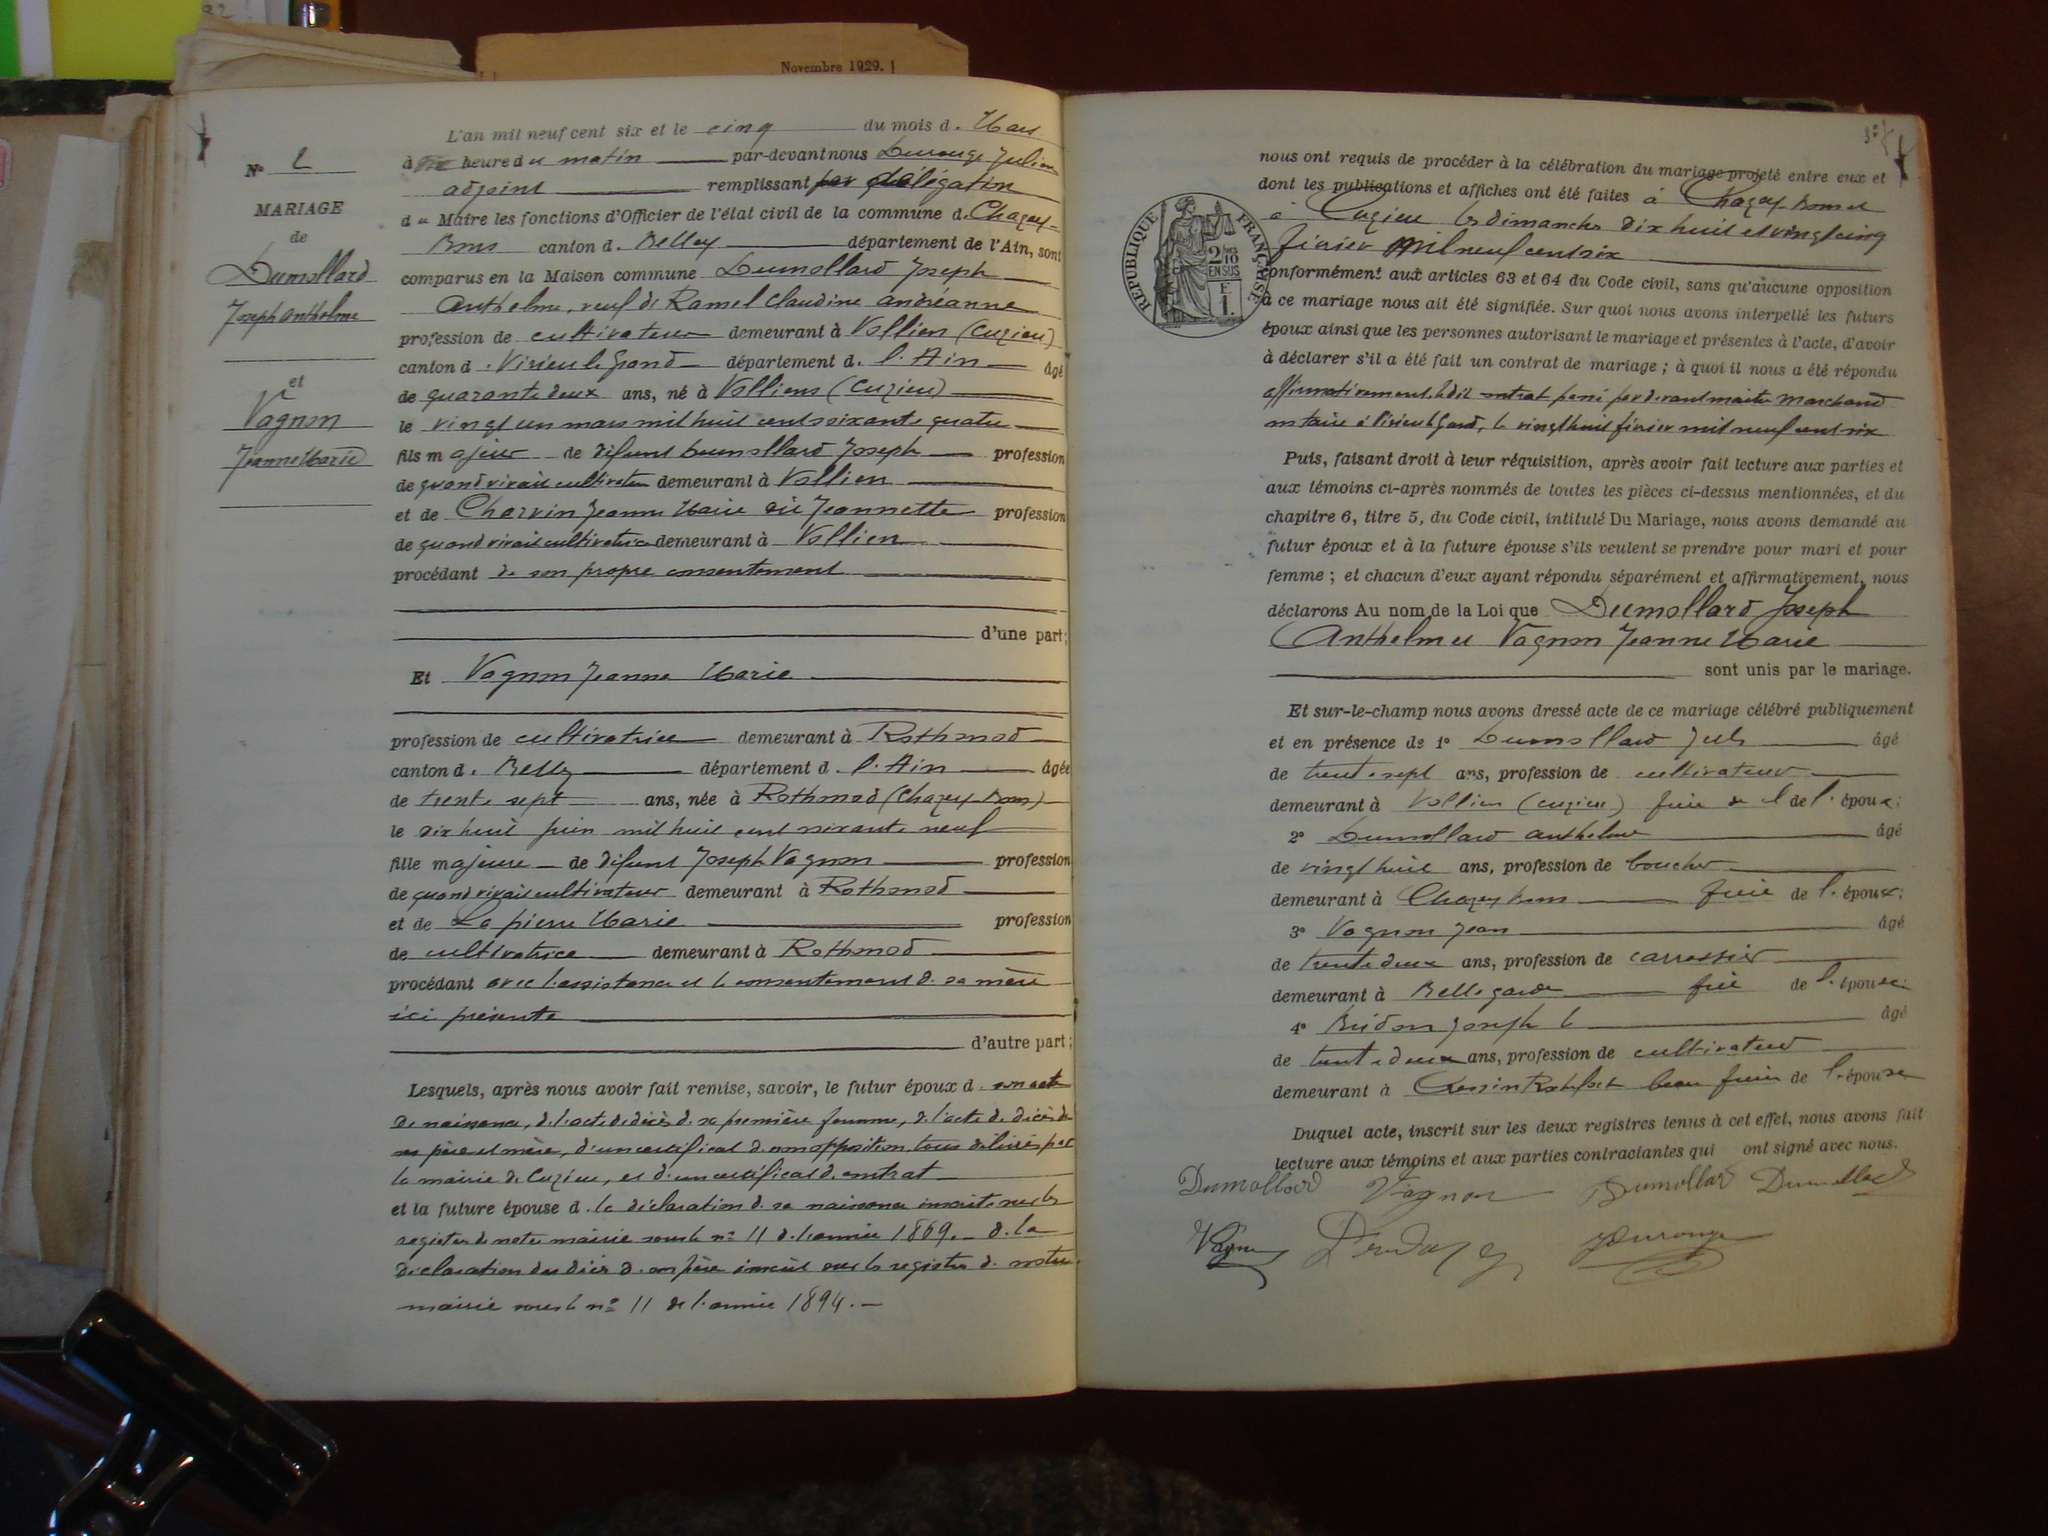 Novembre 1929.
L'an mil neuf cent six et le cinq du mois d. Mars
à heure du matin par-devant nous Durouge Julien
adjoint remplissant par délégation
du Maire les fonctions d'Officier de l'état civil de la commune d. Chazey-
Bons canton d. Belley département de l'Ain, sont
comparus en la Maison commune Dumollard Joseph
Anthelme, veuf de Ramel Claudine Andréanne
profession de cultivateur demeurant à Vollien (Cuzieu)
canton d. Virieu le Grand département d. l'Ain âgé
de quarante deux ans, né à Volliens (Cuzieu)
le vingt un mars mil huit cent soixante quatre
fils majeur de défunt Dumollard Joseph profession
de quand vivait cultivateur demeurant à Vollien
et de Charvin Jeanne Marie dit Jeannette profession
de quand vivait cultivatrice demeurant à Vollien
procédant de son propre consentement
d'une part;
Et Vagnon Jeanne Marie
profession de cultivatrice demeurant à Rothonod
canton d. Belley département d. l'Ain âgée
de trente sept ans, née à Rothonod (Chazey-Bons)
le dix huit juin mil huit cent soixante neuf
fille majeure de défunt Joseph Vagnon profession
de quand vivait cultivateur demeurant à Rothonod
et de La pierre Marie profession
de cultivatrice demeurant à Rothonod
procédant avec l'assistance et le consentement de sa mère
ici présente
d'autre part;
Lesquels, après nous avoir fait remise, savoir, le futur époux d. son acte
de naissance, de l'acte de décès de sa première femme, de l'acte de décès de
ses père et mère, d'un certificat de non opposition tous délivrés par
la mairie de Cuzieu, et d'un certificat de contrat
et la future épouse d. la déclaration de sa naissance inscrite sur les
registres de notre mairie sous le n° 11 de l'année 1869. - de la
déclaration du décès de son père inscrit sur les registres de notre
mairie sous le n° 11 de l'année 1894. -
N° 2
MARIAGE
de
Dumollard
Joseph Anthelme
et
Vagnon
Jeanne Marie
nous ont requis de procéder à la célébration du mariage projeté entre eux et
dont les publications et affiches ont été faites à Chazey-Bons et
à Cuzieu les dimanches dix huit et vingt cinq
février mil neuf cent six
conformément aux articles 63 et 64 du Code civil, sans qu'aucune opposition
à ce mariage nous ait été signifiée. Sur quoi nous avons interpellé les futurs
époux ainsi que les personnes autorisant le mariage et présentes à l'acte, d'avoir
à déclarer s'il a été fait un contrat de mariage; à quoi il nous a été répondu
affirmativement, ledit contrat passé par devant maître Marchand
notaire à Virieu le Grand, le vingt huit février mil neuf cent six
Puis, faisant droit à leur réquisition, après avoir fait lecture aux parties et
aux témoins ci-après nommés de toutes les pièces ci-dessus mentionnées, et du
chapitre 6, titre 5, du Code civil, intitulé Du Mariage, nous avons demandé au
futur époux et à la future épouse s'ils veulent se prendre pour mari et pour
femme; et chacun d'eux ayant répondu séparément et affirmativement, nous
déclarons Au nom de la Loi que Dumollard Joseph
Anthelme et Vagnon Jeanne Marie
sont unis par le mariage.
Et sur-le-champ nous avons dressé acte de ce mariage célébré publiquement
et en présence de 1° Dumollard Jules âgé
de trente sept ans, profession de cultivateur
demeurant à Vollien (Cuzieu) frère de l'époux;
2° Dumollard Anthelme âgé
de vingt huit ans, profession de boucher
demeurant à Chazey Bons frère de l'époux;
3° Vagnon Jean âgé
de trente deux ans, profession de carrossier
demeurant à Bellegarde frère de l'épouse;
4° Joseph âgé
de trente deux ans, profession de cultivateur
demeurant à beau frère de l'épouse
Duquel acte, inscrit sur les deux registres tenus à cet effet, nous avons fait
lecture aux témoins et aux parties contractantes qui ont signé avec nous.
Dumollard Vagnon Dumollard Dumollard
Vagnon JDurouge
RÉPUBLIQUE FRANÇAISE
2/10
EN SUS